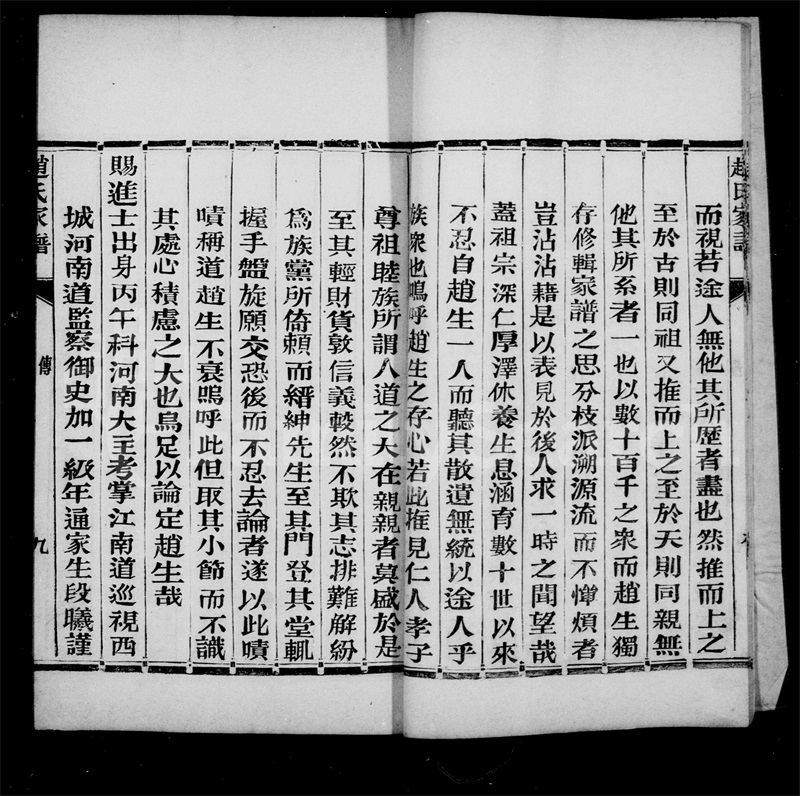 趙氏家譜
而視若途人無他其所歷者盡也然推而上之
至於古則同祖又推而上之至於天則同親無
他其所系者一也以數十百千之衆而趙生獨
存修輯家譜之思分枝派溯源流而不憚煩者
豈沾沾藉是以表見於後人求一時之聞望哉
蓋祖宗深仁厚澤休養生息涵育數十世以來
不忍自趙生一人而聽其散遺無統以途人乎
族衆也嗚呼趙生之存心若此推見仁人孝子
尊祖睦族所謂人道之大在親親者莫盛於是
至其輕財貨敦信義毅然不欺其志排難解紛
爲族黨所倚賴而縉紳先生至其門登其堂輒
握手盤旋願交恐後而不忍去論者遂以此嘖
嘖稱道趙生不衰嗚呼此但取其小節而不識
其處心積慮之大也烏足以論定趙生哉
賜進士出身丙午科河南大主考掌江南道巡視西
城河南道監察御史加一級年通家生段曦謹
趙氏家譜
傳
九